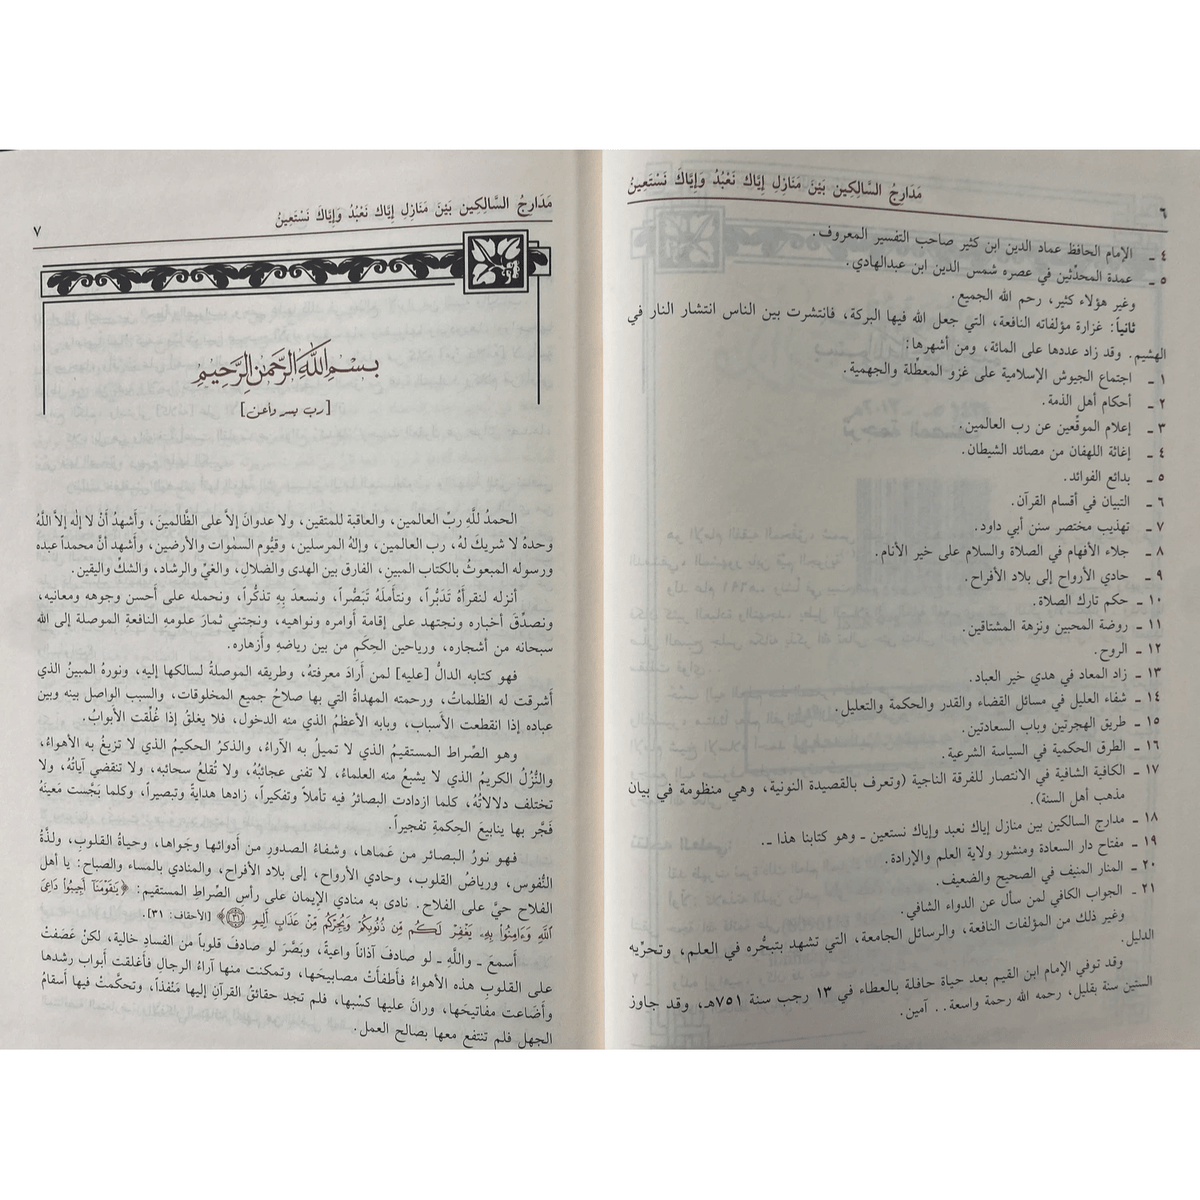 ٦
مَدَارِجُ السَّالِكِين بَيْنَ مَنَازِلِ إِيَّاكَ نَعْبُدُ وَإِيَّاكَ نَسْتَعِينُ
٤ ـ الإمام الحافظ عماد الدين ابن كثير صاحب التفسير المعروف.
٥ ـ عمدة المحدِّثين في عصره شمس الدين ابن عبدالهادي.
وغير هؤلاء كثير، رحم الله الجميع.
ثانياً: غزارة مؤلفاته النافعة، التي جعل الله فيها البركة، فانتشرت بين الناس انتشار النار في
الهشيم. وقد زاد عددها على المائة، ومن أشهرها:
١ ـ اجتماع الجيوش الإسلامية على غزو المعطِّلة والجهمية.
٢ ـ أحكام أهل الذمة.
٣ ـ إعلام الموقِّعين عن رب العالمين.
٤ ـ إغاثة اللهفان من مصائد الشيطان.
٥ ـ بدائع الفوائد.
٦ ـ التبيان في أقسام القرآن.
٧ ـ تهذيب مختصر سنن أبي داود.
٨ ـ جلاء الأفهام في الصلاة والسلام على خير الأنام.
٩ ـ حادي الأرواح إلى بلاد الأفراح.
١٠ ـ حكم تارك الصلاة.
١١ ـ روضة المحبين ونزهة المشتاقين.
١٢ ـ الروح.
١٣ ـ زاد المعاد في هدي خير العباد.
١٤ ـ شفاء العليل في مسائل القضاء والقدر والحكمة والتعليل.
١٥ ـ طريق الهجرتين وباب السعادتين.
١٦ ـ الطرق الحكمية في السياسة الشرعية.
١٧ ـ الكافية الشافية في الانتصار للفرقة الناجية (وتعرف بالقصيدة النونية، وهي منظومة في بيان
مذهب أهل السنة).
١٨ ـ مدارج السالكين بين منازل إياك نعبد وإياك نستعين ـ وهو كتابنا هذا ـ.
١٩ ـ مفتاح دار السعادة ومنشور ولاية العلم والإرادة.
٢٠ ـ المنار المنيف في الصحيح والضعيف.
٢١ ـ الجواب الكافي لمن سأل عن الدواء الشافي.
وغير ذلك من المؤلفات النافعة، والرسائل الجامعة، التي تشهد بتبحُّره في العلم، وتحرِّيه
الدليل.
وقد توفي الإمام ابن القيم بعد حياة حافلة بالعطاء في ١٣ رجب سنة ٧٥١هـ، وقد جاوز
الستين سنة بقليل، رحمه الله رحمة واسعة.. آمين.
مَدَارِجُ السَّالِكِين بَيْنَ مَنَازِلِ إِيَّاكَ نَعْبُدُ وَإِيَّاكَ نَسْتَعِينُ
٧
بِسْمِ اللَّهِ الرَّحْمَٰنِ الرَّحِيمِ
[رب يسر وأعن]
الحمدُ للَّهِ ربِّ العالمين، والعاقبة للمتقين، ولا عدوانَ إلاَّ على الظَّالمينَ، وأَشهدُ أنْ لا إلٰه إلاَّ اللَّهُ
وحدهُ لا شريكَ لهُ، رب العالمين، وإلهُ المرسلين، وقيُّوم السمٰوات والأرضين، وأَشهد أنَّ محمداً عبده
ورسوله المبعوثُ بالكتاب المبينِ، الفارق بين الهدى والضلالِ، والغيِّ والرشاد، والشكِّ واليقين.
أنزله لنقرأهُ تَدَبُّراً، ونتأملَهُ تَبَصُّراً، ونسعدَ بِهِ تذكُّراً، ونحمله على أحسن وجوهه ومعانيه،
ونصدِّقَ أخباره ونجتهد على إقامة أوامره ونواهيه، ونجتني ثمارَ علومهِ النافعةِ الموصلة إلى الله
سبحانه من أشجاره، ورياحين الحِكَم من بين رياضهِ وأزهاره.
فهو كتابه الدالُّ [عليه] لمن أَرادَ معرفتهُ، وطريقه الموصلةُ لسالكها إليه، ونورهُ المبينُ الذي
أَشرقت له الظلماتُ، ورحمته المهداةُ التي بها صلاحُ جميع المخلوقات، والسبب الواصل بينه وبين
عباده إذا انقطعت الأَسباب، وبابه الأعظمُ الذي منه الدخول، فلا يغلقُ إذا غُلِّقت الأبوابُ.
وهو الصِّراط المستقيمُ الذي لا تميلُ به الآراءُ، والذكرُ الحكيمُ الذي لا تزيغُ به الأهواءُ،
والنُّزُلُ الكريمُ الذي لا يشبعُ منه العلماءُ، لا تفنى عجائبُهُ، ولا تُقلعُ سحائبه، ولا تنقضي آياتُهُ، ولا
تختلف دلالاتُهُ، كلما ازدادت البصائرُ فيه تأملاً وتفكيراً، زادها هدايةً وتبصيراً، وكلما بَجَّست مَعينهُ
فَجَّر بها ينابيعَ الحِكمةِ تفجيراً.
فهو نورُ البصائر من عَماها، وشفاءُ الصدورِ من أدوائها وجَواها، وحياةُ القلوبِ، ولذَّةُ
النُّفوس، ورياضُ القلوب، وحادي الأرواح، إلى بلاد الأفراح، والمنادي بالمساء والصباح: يا أهل
الفلاح حيَّ على الفلاح. نادى به منادي الإيمان على رأس الصِّراطِ المستقيم: ﴿يَٰقَوْمَنَآ أَجِيبُوا۟ دَاعِىَ
ٱللَّهِ وَءَامِنُوا۟ بِهِۦ يَغْفِرْ لَكُم مِّن ذُنُوبِكُمْ وَيُجِرْكُم مِّنْ عَذَابٍ أَلِيمٍ ٣١﴾ [الأحقاف: ٣١].
أسمعَ ـ واللَّهِ ـ لو صادفَ آذاناً واعيةً، وبَصَّرَ لو صادفَ قلوباً من الفسادِ خالية، لكنْ عَصَفتْ
على القلوبِ هذه الأهواءُ فأطفأتْ مصابيحَها، وتمكنت منها آراءُ الرجالِ فأغلقت أبواب رشدها
وأضاعت مفاتيحَها، ورانَ عليها كسْبها، فلم تجد حقائقُ القرآنِ إليها مَنْفذاً، وتحكَّمتْ فيها أسقامُ
الجهلِ فلم تنتفع معها بصالح العمل.